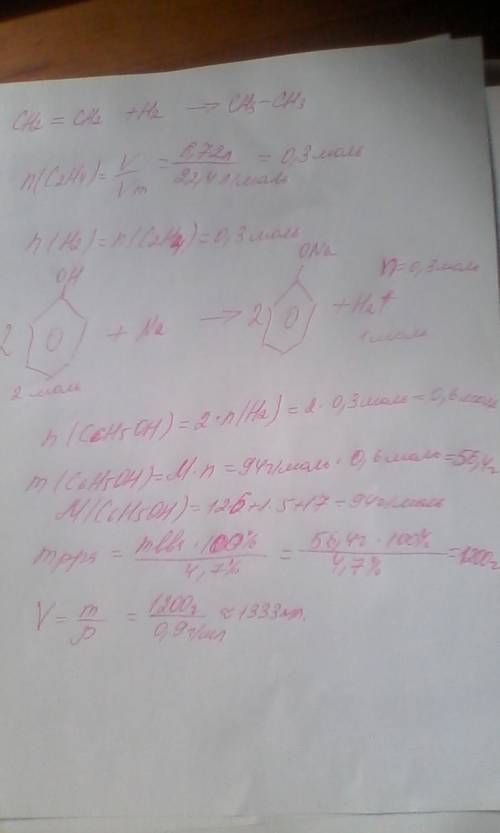 CH2 = CH2 + H2 → CH3-CH3
n(C2H4) = V/Vm = 6,72л/22,4 л/моль = 0,3 моль
n(H2) = n(C2H4) = 0,3 моль
OH ONa n=0,3 моль
2 + Na → 2 + H2↑
2 моль 1 моль
n(C6H5OH) = 2·n(H2) = 2·0,3 моль = 0,6 моль
m(C6H5OH) = M·n = 94г/моль · 0,6 моль = 56,4г
M(C6H5OH) = 12·6+1·5+17 = 94г/моль
mр-ра = mв-ва·100%/4,7% = 56,4г·100%/4,7% = 1200г
V = m/ρ = 1200г/0,9г/мл ≈ 1333мл.